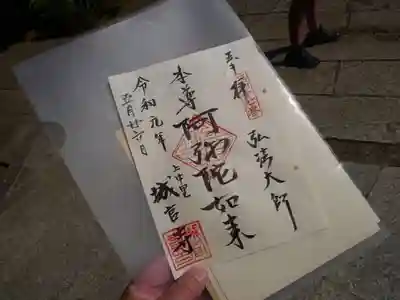 拝
弘法大師
本尊
阿弥陀如来
上中里
城官寺
令和元年
五月廿六日